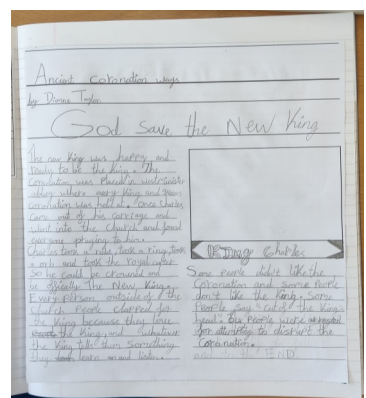 Ancient coronation ways
by Dionne Taylor
God save the New King
The new King was happy and
ready to be the King. The
coronation was placed in westminister
abbey where every King and
coronation was held at. Once Charles
came out of his carriage and
went into the church and found
some praying to him.
Charles took a robe, took a ring, took
a orb and took the royal
So he could be crowned and
be officially The New King.
Every person outside of the
church People clapped for
the King because they love
the King and whatever
the King tells them something
they learn on and listen.
King Charles
Some People didn't like the
Coronation and some People
don't like the King. Some
People say "cut of the King
head". The People were arrested
for attempting to disrupt the
Coronation.
END